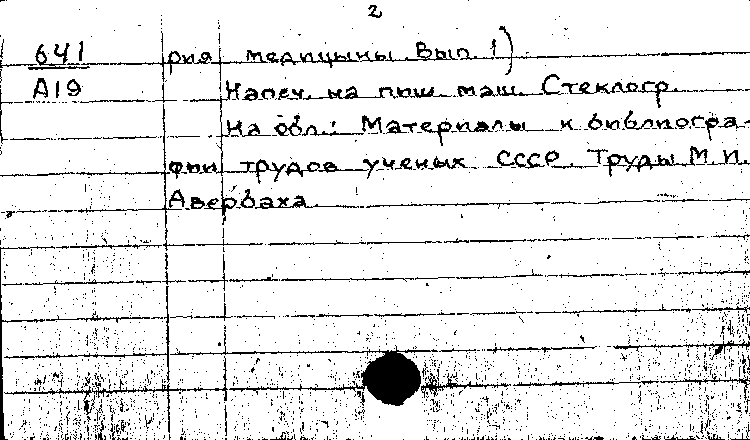 2
641 рия медицины. Вып. 1)
А19 Напеч. на пиш. маш. Стеклогр.
На обл.: Материалы к библиогра-
фии трудов ученых СССР. Труды М.И.
Авербаха.